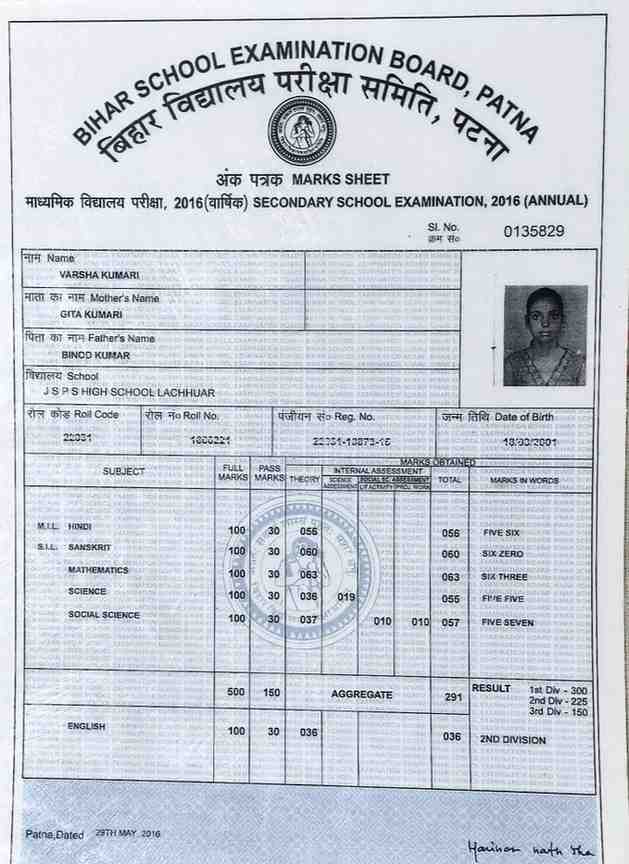 BIHAR SCHOOL EXAMINATION BOARD, PATNA
बिहार विद्यालय परीक्षा समिति, पटना
अंक पत्रक MARKS SHEET
माध्यमिक विद्यालय परीक्षा, 2016(वार्षिक) SECONDARY SCHOOL EXAMINATION, 2016 (ANNUAL)
Sl. No.
क्रम सं० 0135829
नाम Name
VARSHA KUMARI
माता का नाम Mother's Name
GITA KUMARI
पिता का नाम Father's Name
BINOD KUMAR
विद्यालय School
J S P S HIGH SCHOOL LACHHUAR
रोल कोड Roll Code रोल नं० Roll No. पंजीयन सं० Reg. No. जन्म तिथि Date of Birth
SUBJECT FULL MARKS PASS MARKS MARKS OBTAINED
THEORY INTERNAL ASSESSMENT TOTAL MARKS IN WORDS
SCIENCE ASSESSMENT SOCIAL SC. ASSESSMENT
LIT ACTIVITY PROJ. WORK
M.I.L. HINDI 100 30 056 056 FIVE SIX
S.I.L. SANSKRIT 100 30 060 060 SIX ZERO
MATHEMATICS 100 30 063 063 SIX THREE
SCIENCE 100 30 036 019 055 FIVE FIVE
SOCIAL SCIENCE 100 30 037 010 010 057 FIVE SEVEN
500 150 AGGREGATE 291 RESULT 1st Div - 300
2nd Div - 225
3rd Div - 150
ENGLISH 100 30 036 036 2ND DIVISION
Patna,Dated 29TH MAY, 2016